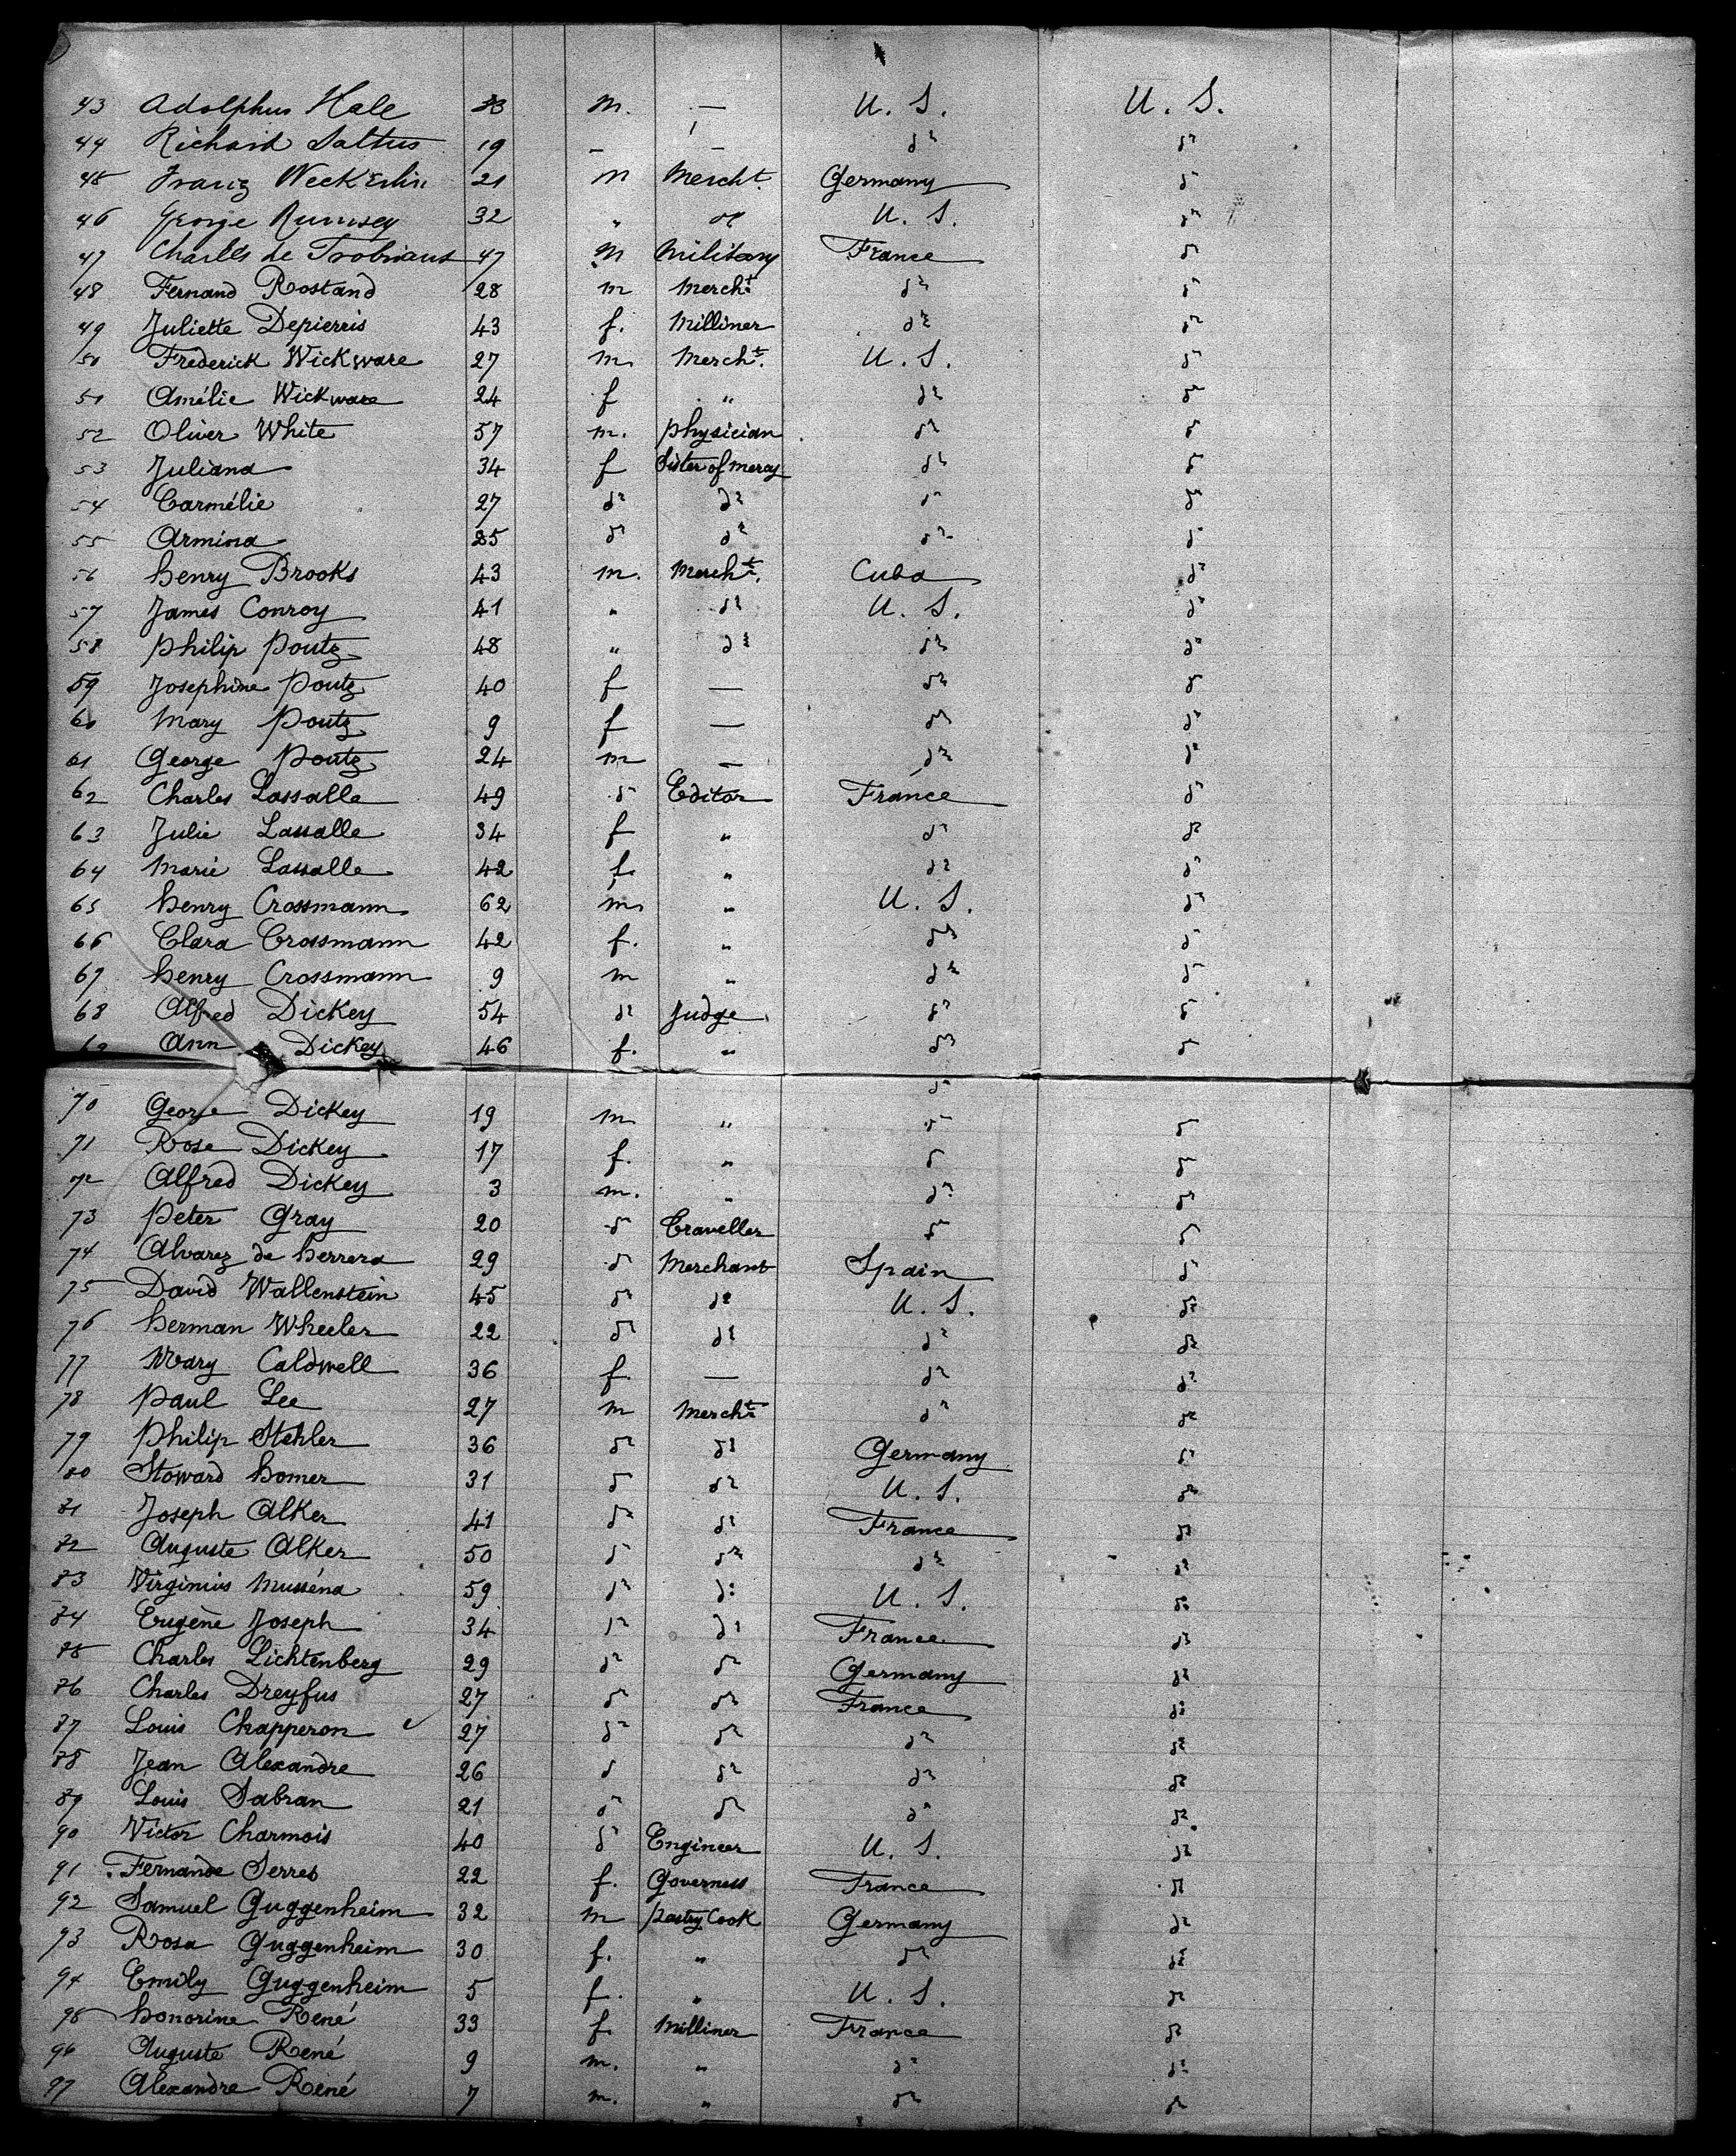 43 Adolphus Hale 23 m. — U. S. U. S.
44 Richard Saltus 19 — — do do
45 Franz Weckerlin 21 m Mercht. Germany do
46 George Rumsey 32 " do U. S. do
47 Charles de Trobriant 47 m Military France do
48 Fernand Rostand 28 m Mercht. do do
49 Juliette Depierris 43 f. Milliner do do
50 Frederick Wickware 27 m. Mercht. U. S. do
51 Amélie Wickware 24 f " do do
52 Oliver White 57 m. physician do do
53 Juliana 34 f Sister of mercy do do
54 Carmélie 27 do do do do
55 Armina 25 do do do do
56 henry Brooks 43 m. Mercht. Cuba do
57 James Conroy 41 " do U. S. do
58 philip poutz 48 " do do do
59 Josephine poutz 40 f — do do
60 Mary poutz 9 f — do do
61 George poutz 24 m — do do
62 Charles Lassalle 49 do Editor France do
63 Julie Lassalle 34 f " do do
64 Marie Lassalle 42 f. " do do
65 henry Crossmann 62 m. " U. S. do
66 Clara Crossmann 42 f. " do do
67 henry Crossmann 9 m " do do
68 Alfred Dickey 54 do Judge do do
69 Ann Dickey 46 f. " do do
do
70 George Dickey 19 m " do do
71 Rose Dickey 17 f. " do do
72 Alfred Dickey 3 m. " do do
73 peter Gray 20 do Traveller do do
74 Alvarez de herrera 29 do Merchant Spain do
75 David Wallenstein 45 do do U. S. do
76 herman Wheeler 22 do do do do
77 Mary Caldwell 36 f. — do do
78 paul Lee 27 m Mercht. do do
79 philip Stehler 36 do do Germany do
80 Stoward homer 31 do do U. S. do
81 Joseph Alker 41 do do France do
82 Auguste Alker 50 do do do do
83 Virginius Musséna 59 do do U. S. do
84 Eugène Joseph 34 do do France do
85 Charles Lichtenberg 29 do do Germany do
86 Charles Dreyfus 27 do do France do
87 Louis Chapperon 27 do do do do
88 Jean Alexandre 26 do do do do
89 Louis Sabran 21 do do do do
90 Victor Charmois 40 do Engineer U. S. do
91 Fernande Serres 22 f. Governess France do
92 Samuel Guggenheim 32 m pastry Cook Germany do
93 Rosa Guggenheim 30 f. " do do
94 Emily Guggenheim 5 f. " U. S. do
95 honorine René 33 f. Milliner France do
96 Auguste René 9 m. " do do
97 Alexandre René 7 m. " do do